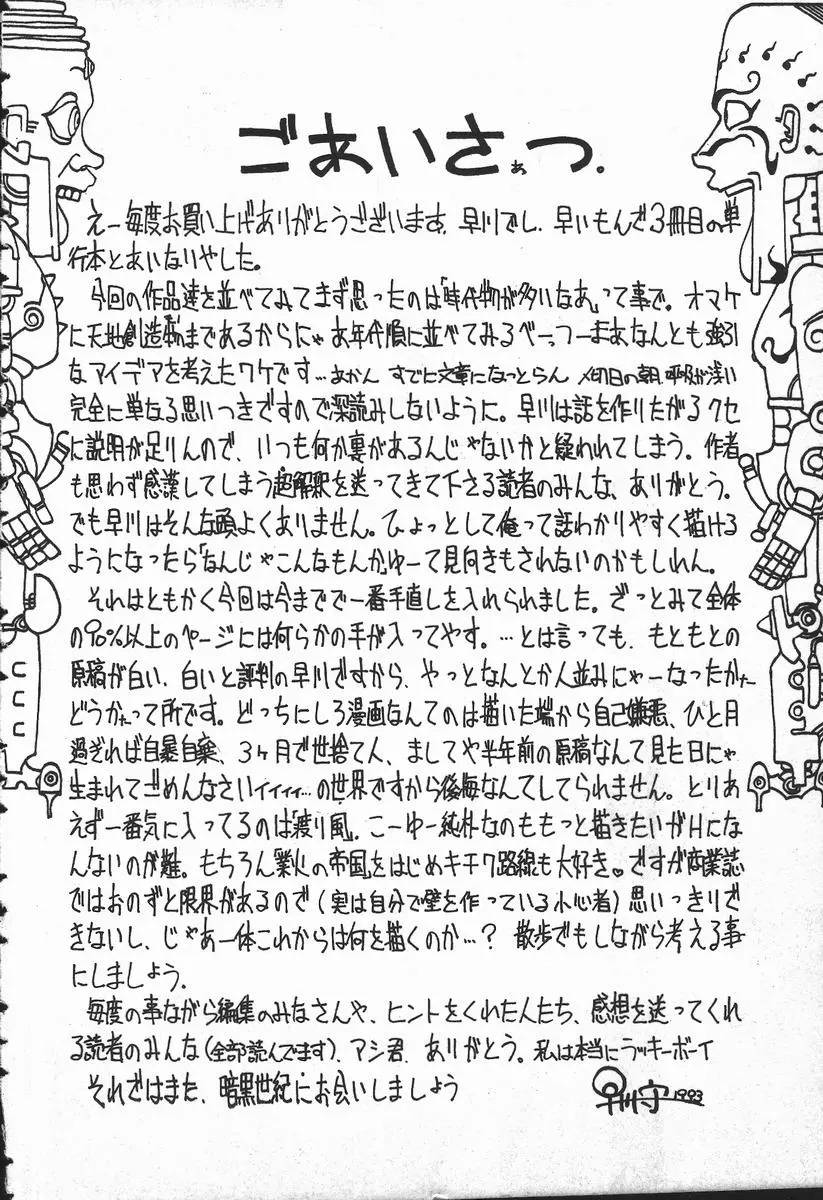 ごあいさぁつ.
えー毎度お買い上げありがとうございます。早川でし。早いもんで3冊目の単
行本とあいなりやした。
今回の作品達を並べてみてまず思ったのは「時代物が多いなあ」って事で。オマケ
に天地創造まであるからにゃお年代順に並べてみるべーっつーまあなんとも強引
なアイデアを考えたワケです…あかん すでに文章になっとらん 〆切日の朝
完全に単なる思いつきですので深読みしないように。早川は話を作りたがるクセ
に説明が足りんので、いつも何か裏があるんじゃないかと疑われてしまう。作者
も思わず感謹してしまう超解釈を送ってきて下さる読者のみんな、ありがとう。
でも早川はそんな頭よくありません。ひょっとして俺って話わかりやすく描ける
ようになったら「なんじゃこんなもんかゆーて見向きもされないのかもしれん。
それはともかく今回は今までで一番手直しを入れられました。ざっとみて全体
の90%以上のページには何らかの手が入ってやす。…とは言っても、もともとの
原稿が白い、白いと評判の早川ですから、やっとなんとか人並みにゃーなったかなー
どうかなって所です。どっちにしろ漫画なんてのは描いた端から自己嫌悪、ひと月
過ぎれば自暴自棄、3ヶ月で世捨て人、ましてや半年前の原稿なんて見た日にゃ
生まれてごめんなさいィィィィ…の世界ですから後悔なんてしてられません。とりあ
えず一番気に入ってるのは「渡り風」。こーゆー純朴なのももっと描きたいがHにな
んないのが難。もちろん業火の帝国をはじめキチク路線も大好き♥ですが商業誌
ではおのずと限界があるので(実は自分で壁を作っている小心者)思いっきりで
きないし、じゃあ一体これからは何を描くのか…?散歩でもしながら考える事
にしましょう。
毎度の事ながら編集のみなさんや、ヒントをくれた人たち、感想を送ってくれ
る読者のみんな(全部読んでます)、アシ君、ありがとう。私は本当にラッキーボーイ
それではまた、暗黒世紀にお会いしましょう
早川守 1993